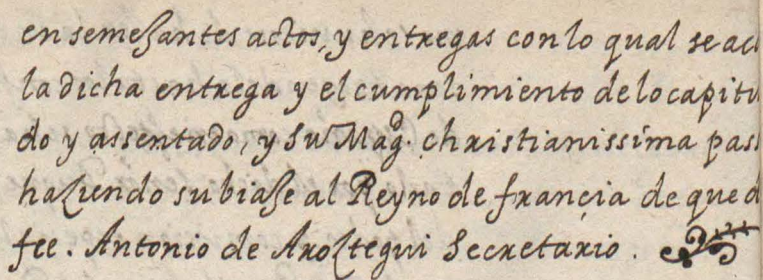 en semejantes actos, y entregas con lo qual se ac
la dicha entrega y el cumplimiento de lo capitu
do y assentado, y Su Magd. christianissima pas
haziendo su biaje al Reyno de françia de que d
fee. Antonio de Aroztegui Secretario.